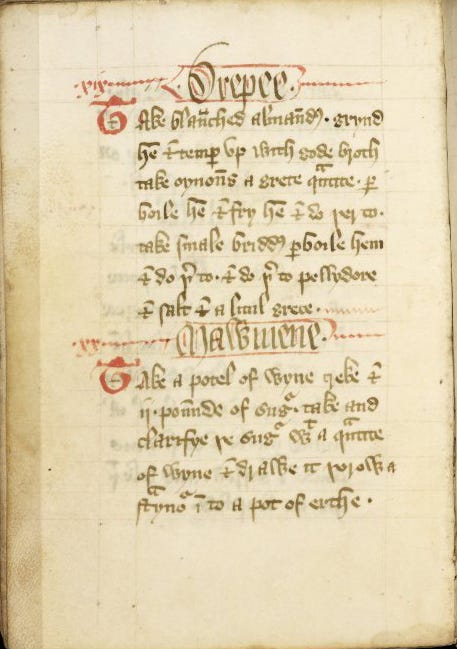 .xix. Drepee.
Take blañched almañdꝭ. grynd
hē ⁊ temꝑ vp with gode broth
take oynoñs a grete qᵃntite. ꝑ
boile hē ⁊ fry hē ⁊ do þer to.
take smale briddꝭ ꝑboile hem
⁊ do þͬ to. ⁊ do þͬ to pellydore
⁊ salt ⁊ a litul grece.
.xx. Mawmene.
Take a potel of wyne greke ⁊
ii. poūnde of sugᵉ. take and
clarifye þe sugᵉ wᵗ a qᵃntite
of wyne ⁊ drawe it þorow a
stᵃynoᵉ ī to a pot of erthe.